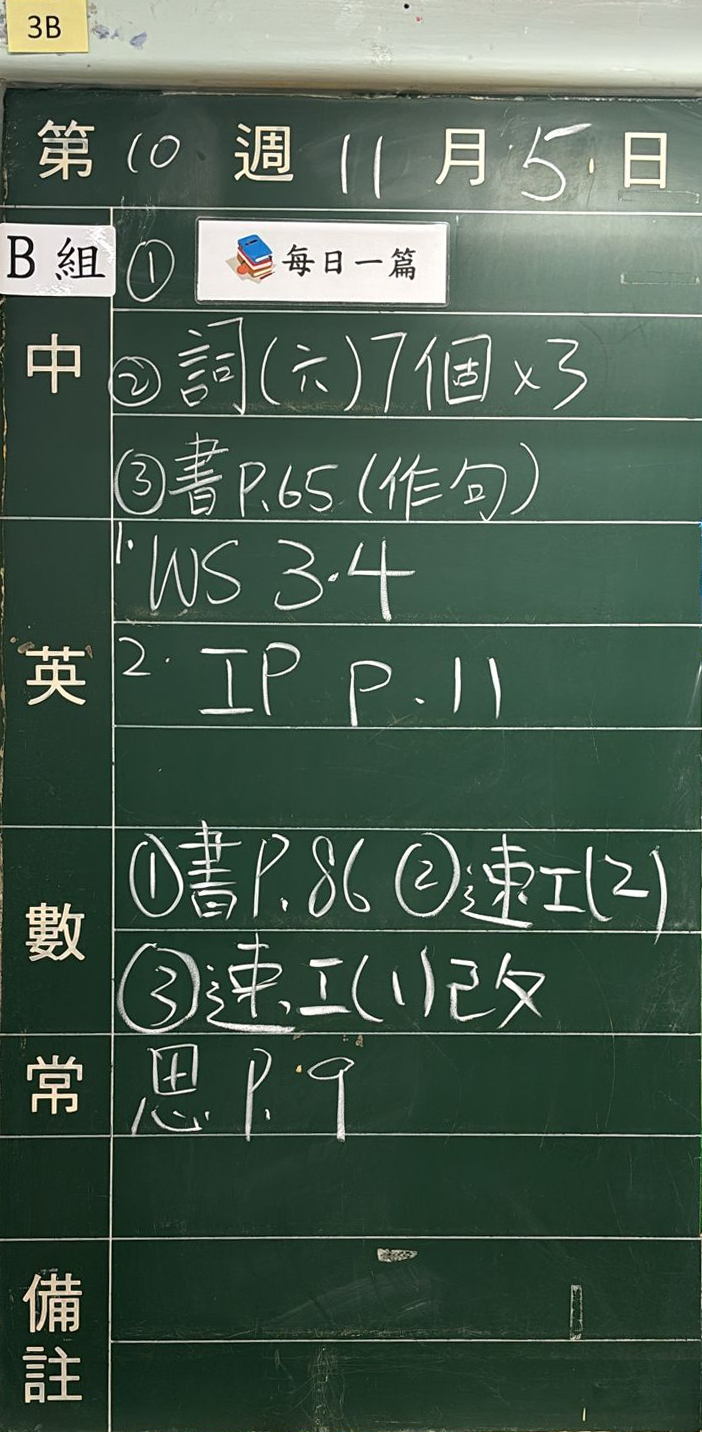 3B
第 10 週 11 月 5 日
B 組 ① 每日一篇
中 ② 詞(六)7個x3
③書P.65(作句)
1. WS 3.4
英 2. IP P.11
數 ①書P.86 ②速工(2)
③速工(1)改
常 思 P.9
備註